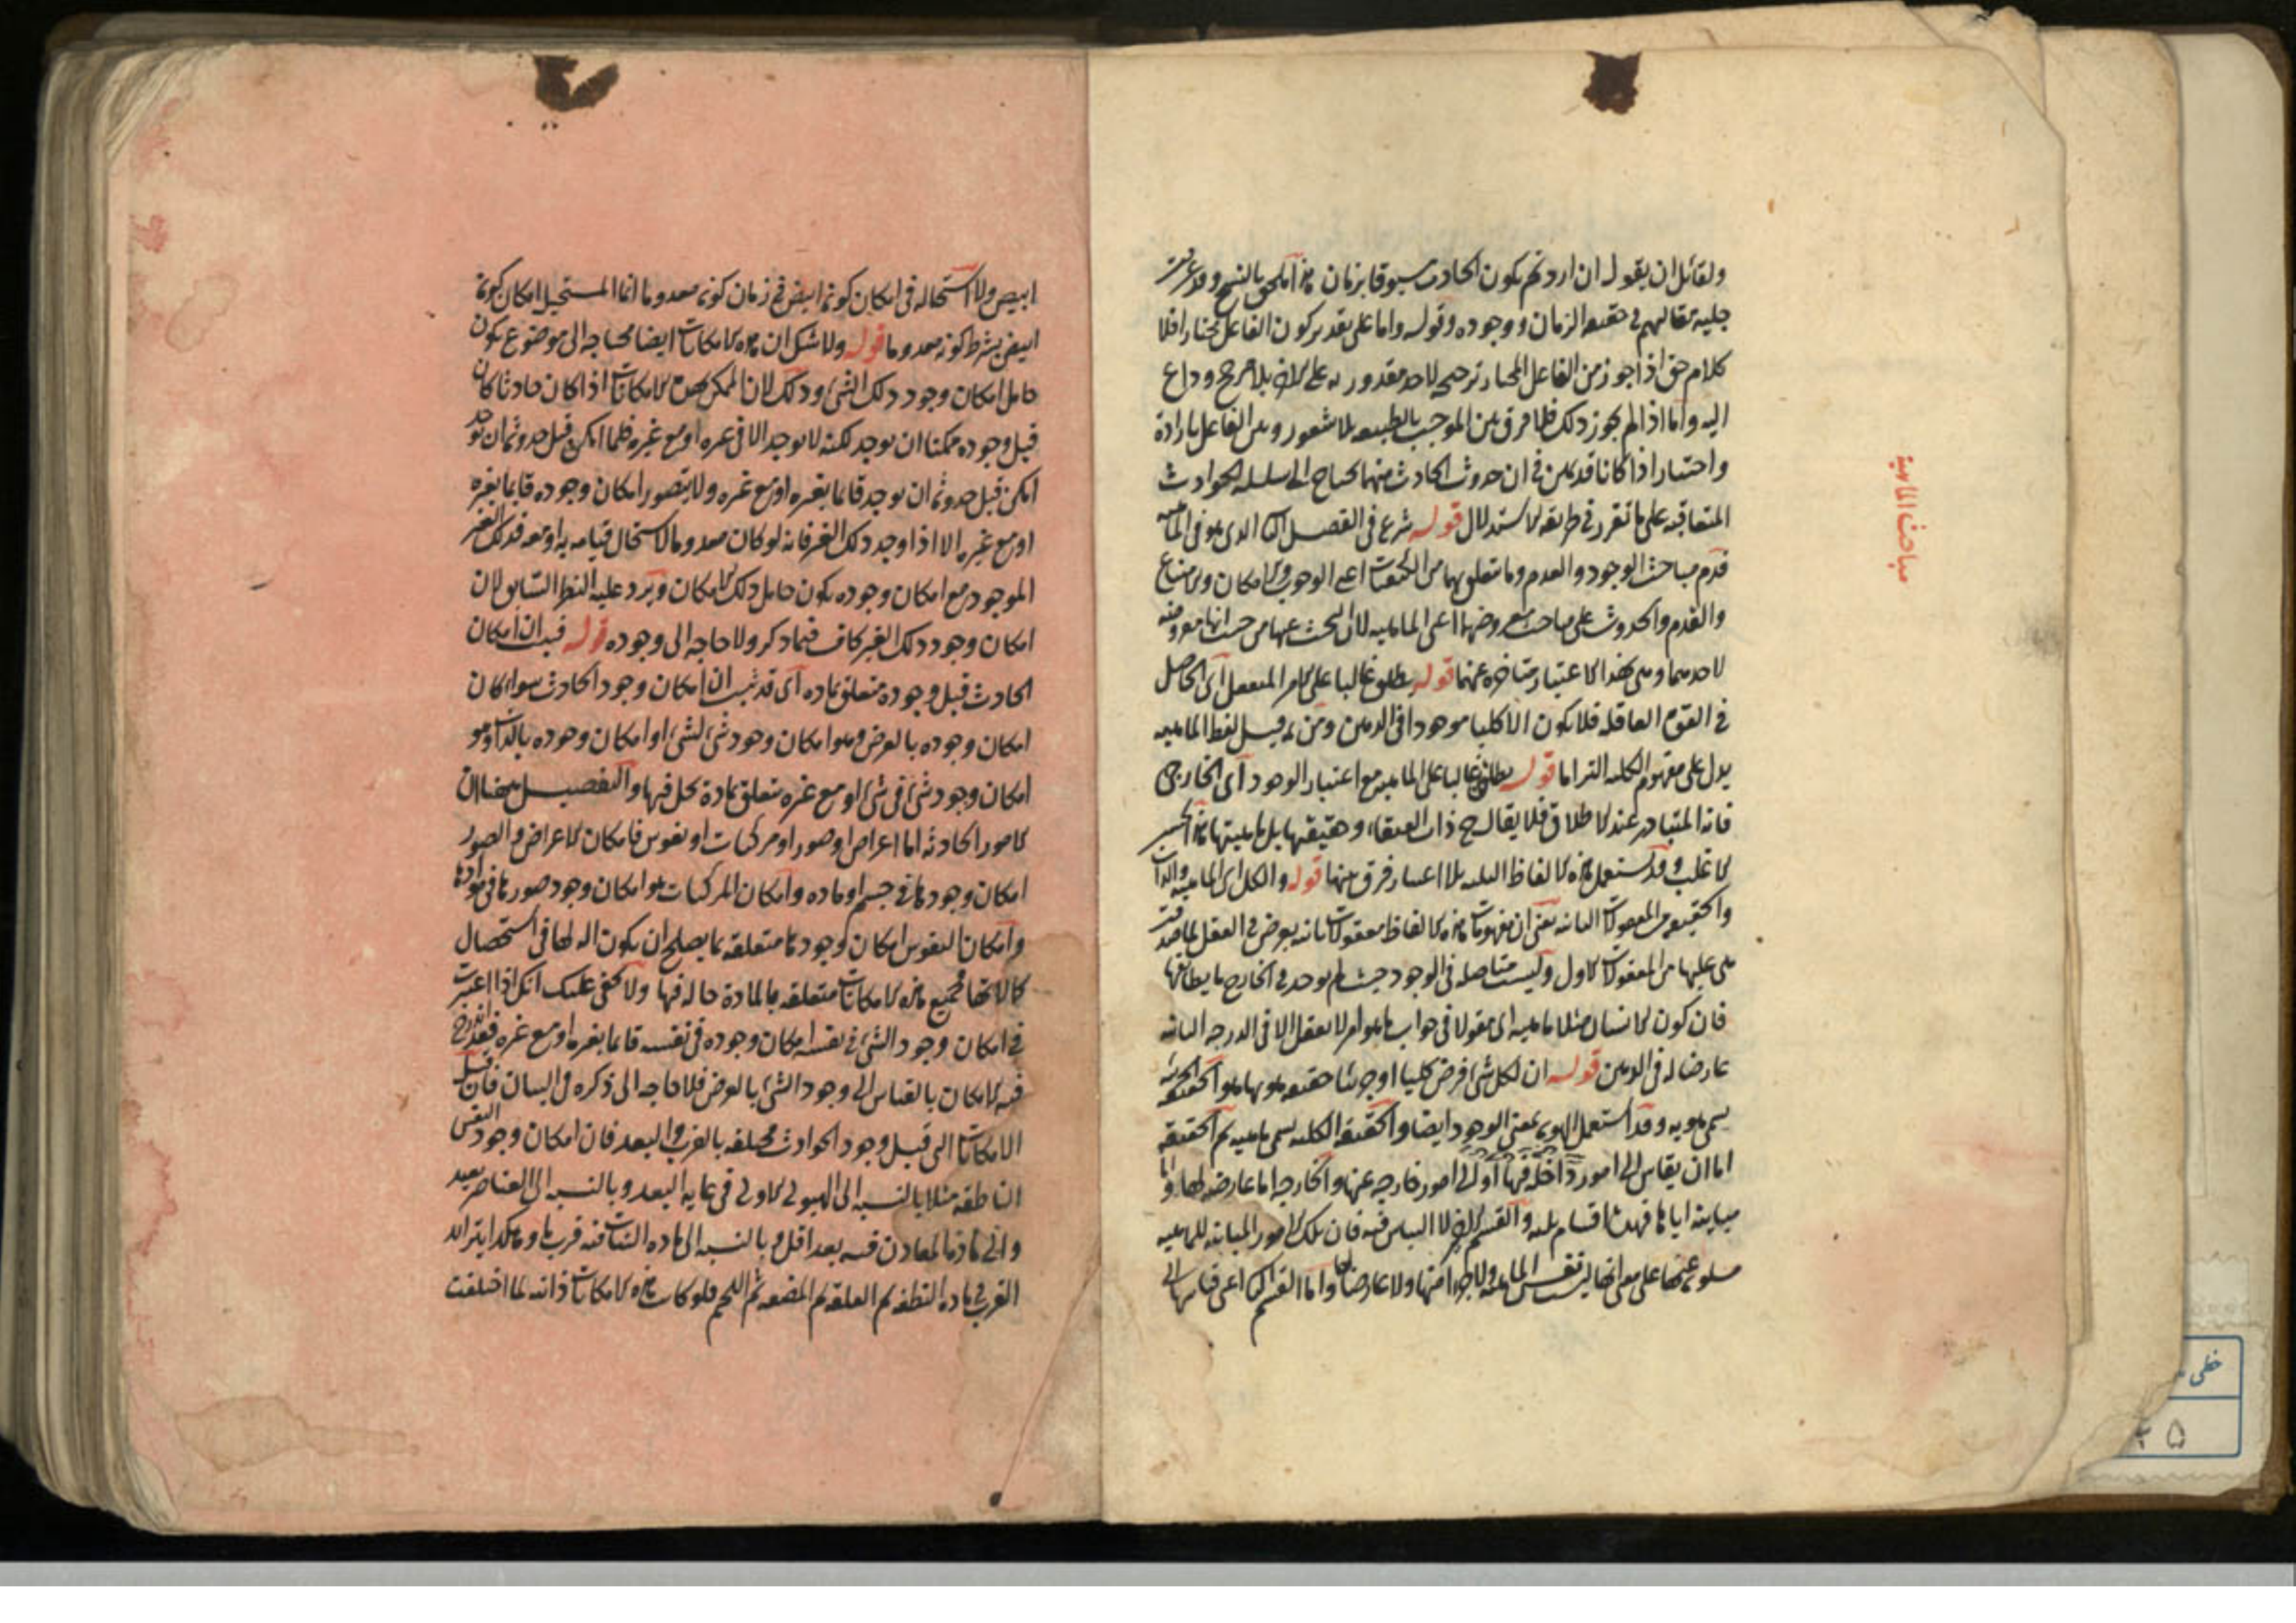 ولقائل ان يقول ان اردتم بكون الحادث مسبوقا بزمان
جلية مقالهم في حقيقة الزمان ووجوده وقوله واما على تقدير كون الفاعل مختارا فلا
كلام حق اذا جوز من الفاعل المختار ترجيحه لاحد مقدوريه على الاخر بلا مرجح وداع
اليه واما اذا لم يجوز ذلك فلا فرق بين الموجب بالطبيعه بلا شعور وبين الفاعل بارادة
واختيار اذا كانا قديمين في ان حدوث الحادث منهما يحتاج الى سلسلة الحوادث
المتعاقبه على ما تقرر في طريقه الاستدلال قوله شرع في الفصل الثاني الذي هو في الماهيه
قدم مباحث الوجود والعدم وما يتعلق بهما من الكيفيات اعني الوجوب والامكان والامتناع
والقدم والحدوث على مباحث معروضها اعني الماهيه لان البحث عنها من حيث انها معروضه
لاحدهما وهي بهذا الاعتبار متاخره عنهما قوله يطلق غالبا على الامر المتعقل اى الحاصل
في القوه العاقله فلا يكون الا كليا موجودا في الذهن ومن ثم قيل لفظ الماهيه
يدل على مفهوم الكليه التزاما قوله يطلق غالبا على الماهيه مع اعتبار الوجود اى الخارجي
فانه المتبادر عند الاطلاق فلا يقال ح ذات العنقاء وحقيقتها بل ماهيتها هذا بحسب
الاغلب وقد يستعمل هذه الالفاظ الثلثه بلا اعتبار فرق بينها قوله والكل اى الماهيه والذات
والحقيقه من المعقولات الثانيه يعنى ان مفهومات هذه الالفاظ معقولات ثانيه يعرض في العقل لما صدقت
هي عليها من المعقولات الاول وليست متاصله في الوجود حيث لم يوجد في الخارج ما يطابقها
فان كون الانسان مثلا ماهيه اى مقولا في جواب ما هو امر لا يعقل الا في الدرجه الثانيه
عارضا له في الذهن قوله ان لكل شئ فرض كليا او جزئيا حقيقه هو بها هو والحقيقه الجزئيه
يسمى هويه وقد يستعمل الهويه بمعنى الوجود ايضا والحقيقه الكليه يسمى ماهيه ثم الحقيقه
اما ان يقاس الى امور داخله فيها او الى امور خارجه عنها والخارجه اما عارضه لها واما
مباينه اياها فهذه اقسام ثلثه والقسم الاخير لا التباس فيه فان تلك الامور المباينه للماهيه
مسلوبه عنها على معنى انها ليست نفس الماهيه ولا جزءا منها ولا عارضا لها واما القسم الثاني اعنى قياسها الى
مباحث الماهية
ابيض ولا استحاله في امكان كونه ابيض في زمان كونه معدوما انما المستحيل امكان كونه
ابيض بشرط كونه معدوما قوله ولا شك ان هذه الامكانات ايضا محتاجه الى موضوع يكون
حامل امكان وجود ذلك الشئ وذلك لان الممكن بهذه الامكانات اذا كان حادثا كان
قبل وجوده ممكنا ان يوجد لكنه لا يوجد الا في غيره او مع غيره فلما امكن قبل حدوثه ان يوجد
امكن قبل حدوثه ان يوجد قائما بغيره او مع غيره ولا يتصور امكان وجوده قائما بغيره
او مع غيره الا اذا وجد ذلك الغير فانه لو كان معدوما لاستحال قيامه به او معه فذلك الغير
الموجود مع امكان وجوده يكون حامل ذلك الامكان ويرد عليه النظر السابق لان
امكان وجود ذلك الغير كاف فيما ذكر ولا حاجه الى وجوده قوله فبان ان امكان
الحادث قبل وجوده متعلق بماده اى قد ثبت ان امكان وجود الحادث سواء كان
امكان وجوده بالعرض وهو امكان وجود شئ لشئ او امكان وجوده بالذات وهو
امكان وجود شئ في شئ او مع غيره متعلق بمادة يحل فيها والتفصيل هناك ان
الامور الحادثه اما اعراض او صور او مركبات او نفوس فامكان الاعراض والصور
امكان وجودها في جسم او ماده وامكان المركبات هو امكان وجود صورها في موادها
وامكان النفوس امكان وجودها متعلقه بما يصلح ان يكون اله لها في استحصال
كمالاتها فجميع هذه الامكانات متعلقه بالمادة حاله فيها ولا يخفى عليك انك اذا اعتبرت
في امكان وجود الشئ في نفسه امكان وجوده في نفسه قائما بغيره او مع غيره فقد اندرج
فيه الامكان بالقياس الى وجود الشئ بالعرض فلا حاجه الى ذكره في البيان فان قيل
الامكانات التي قبل وجود الحوادث مختلفه بالقرب والبعد فان امكان وجود النفس
الناطقه مثلا بالنسبه الى الهيولى الاولى في غايه البعد وبالنسبه الى العناصر بعيد
والى مادة المعادن فيه بعد اقل وبالنسبه الى ماده النبات فيه قرب ما وهكذا يتزايد
القرب في ماده النطفه ثم العلقه ثم المضغه ثم اللحم فلو كانت هذه الامكانات ذاتيه لما اختلفت
خطى